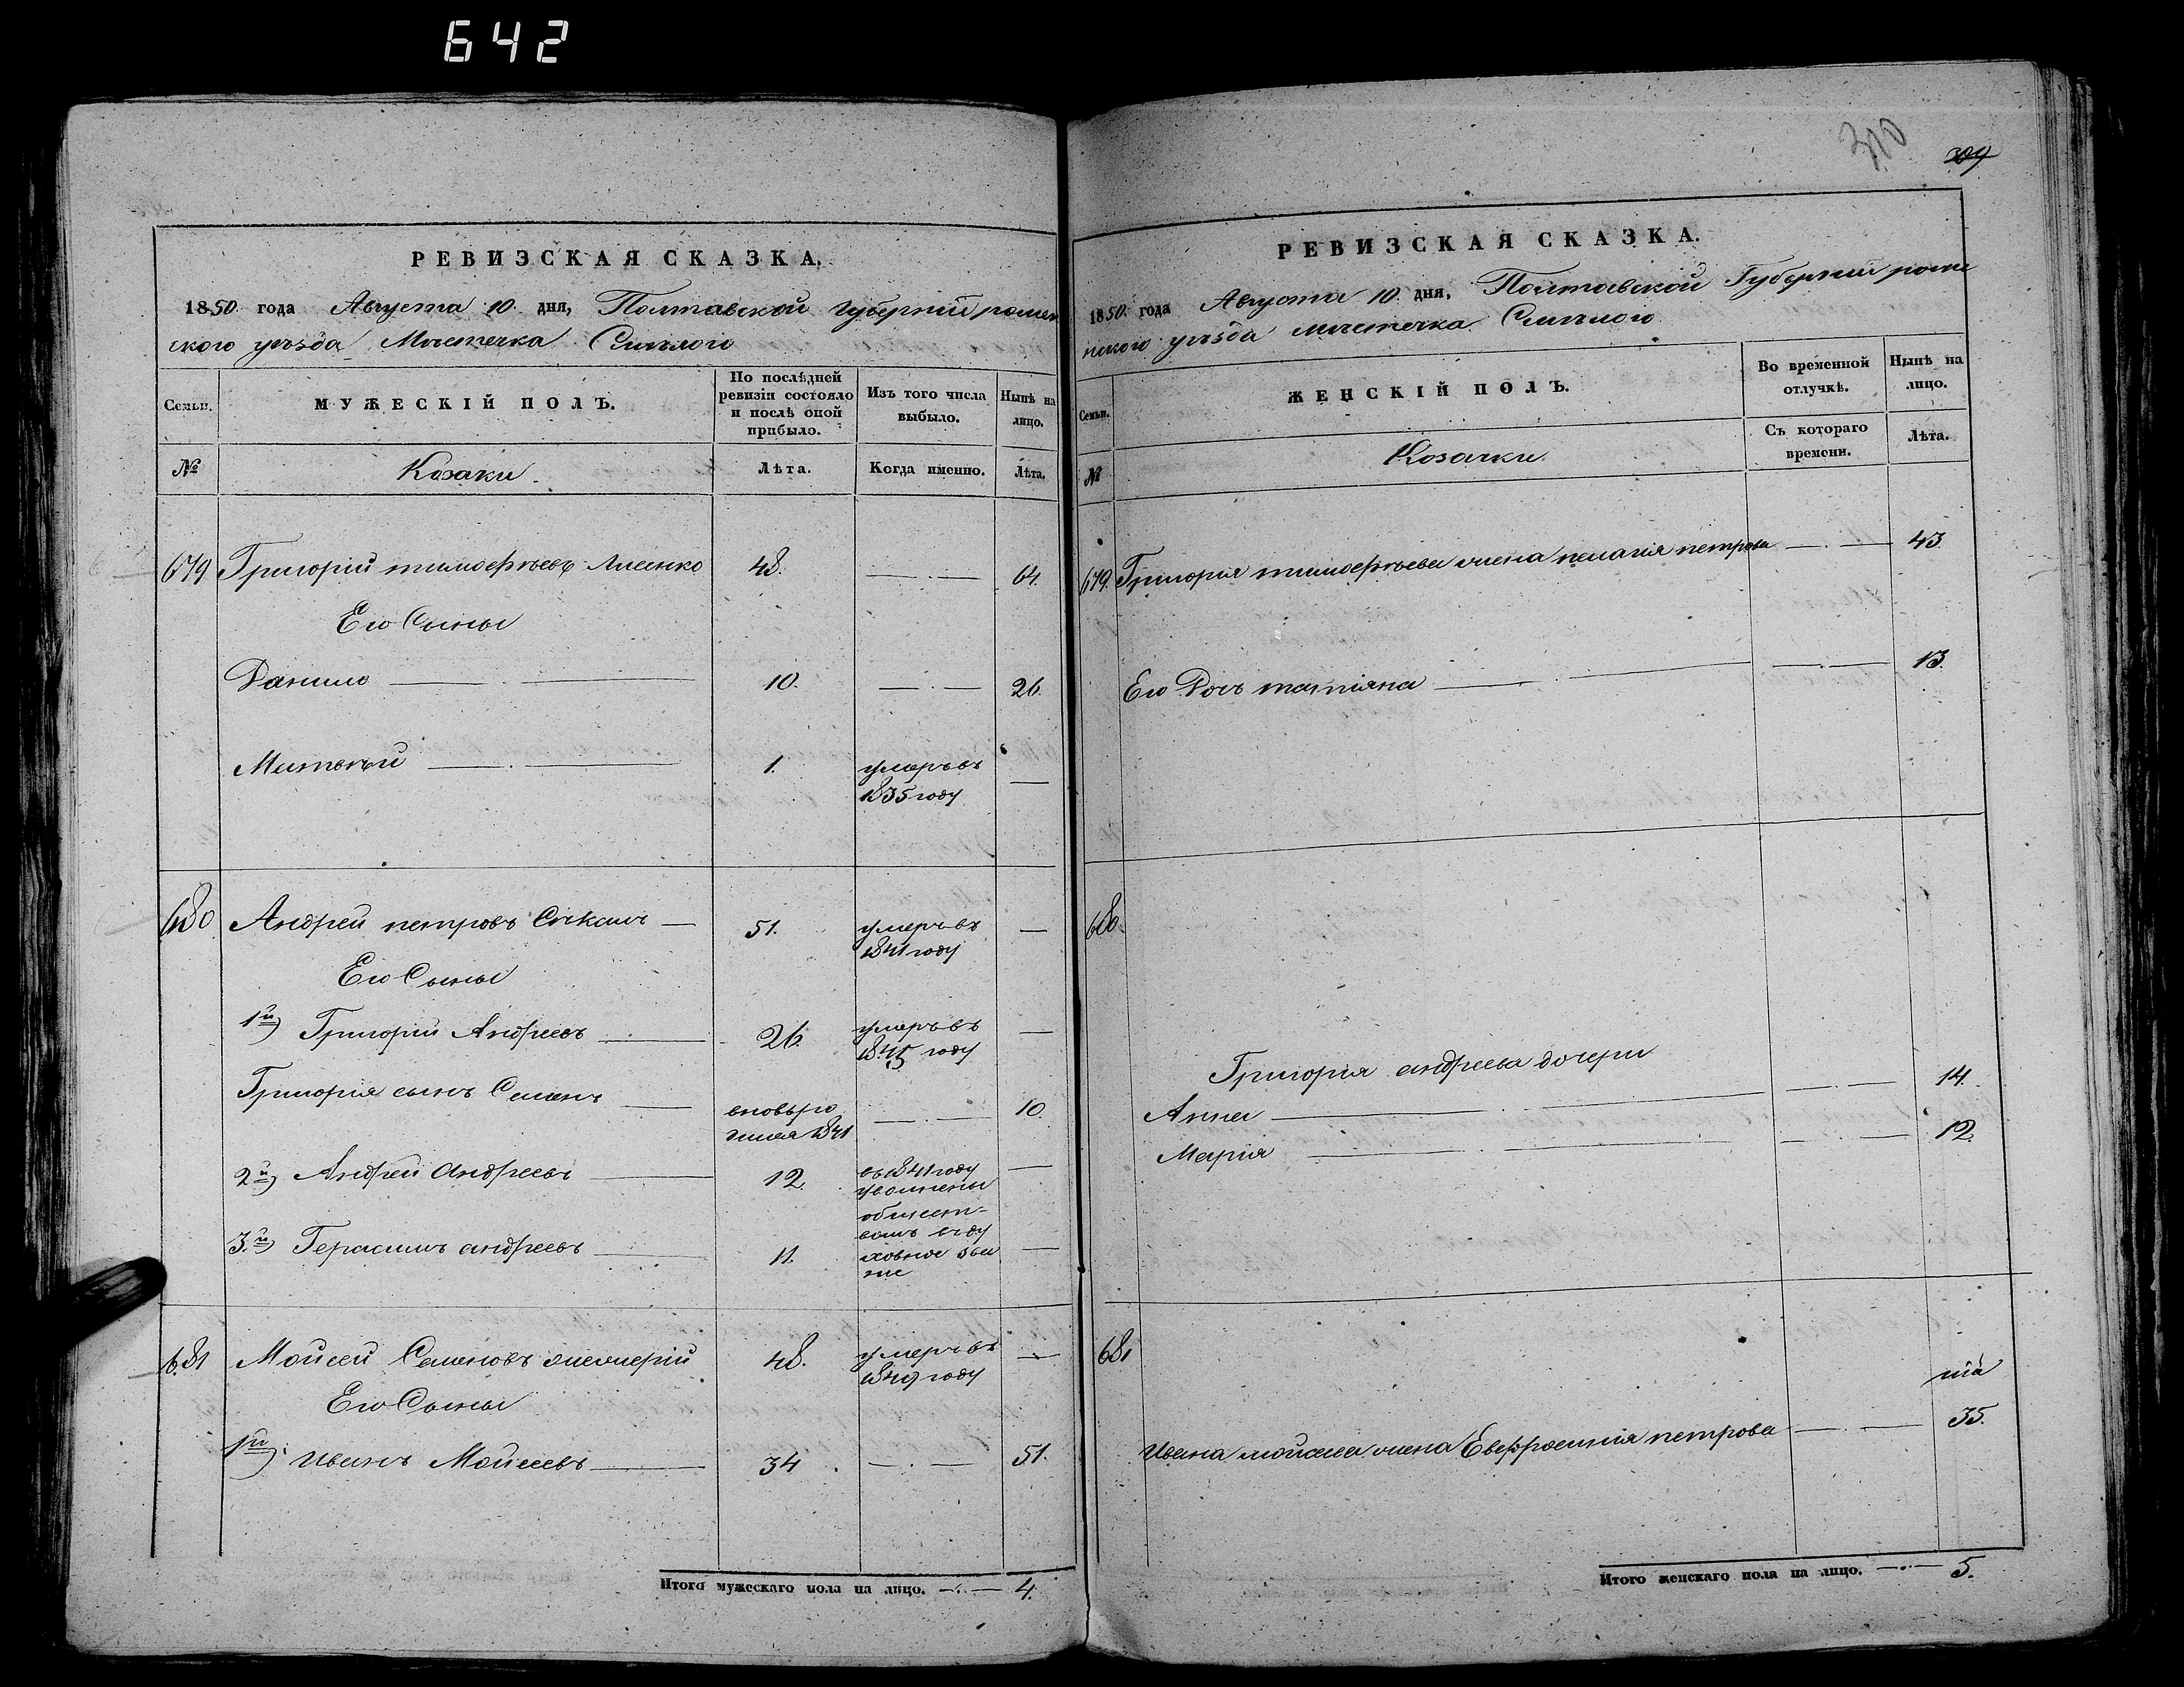 642
РЕВИЗСКАЯ СКАЗКА.
1850 года Августа 10 дня, Полтавской губерніи ромен
ского уѣзда Мѣстечка Смѣлого
Семьи. МУЖЕСКІЙ ПОЛЪ. По послѣдней ревизіи состояло и послѣ оной прибыло. Изъ того числа выбыло. Нынѣ на лицо.
№ Козаки Лѣта. Когда именно. Лѣта.
679 Григорій тимофѣевъ 48. 64.
Его Сыны
Данило 10. 26.
Матвѣй 1. умеръ въ
1835 году
680 Андрей петровъ 51. умеръ въ
1841 году
Его Сыны
1й) Григорій Андреевъ 26. умеръ въ
1845 году
Григорія сынъ Семенъ вновь ро 10.
1841
2й) Андрей андреевъ 12. въ 1841 году
уволнены
общест-
вомъ въ ду
3й) Герасимъ андреевъ 11. ховное зва
ніе
681 Мойсей Семеновъ 48. умеръ въ
1849 году
Его Сыны
1й) Иванъ Мойсеевъ 34. 51.
Итого мужескаго пола на лицо. 4.
310
309
РЕВИЗСКАЯ СКАЗКА.
1850 года Августа 10 дня, Полтавской Губерніи роме
нского уѣзда мѣстечка Смѣлого
Семьи. ЖЕНСКІЙ ПОЛЪ. Во временной отлучкѣ. Нынѣ на лицо.
№ Козачки Съ котораго времени. Лѣта.
679. Григорія тимофѣева жена пелагия петрова 43.
Его Дочь татіяна 13.
680.
Григорія андреева дочери
Анна 14.
Марія 12.
681
Ивана мойсеева жена Евфросинія петрова 35.
Итого женскаго пола на лицо. 5.